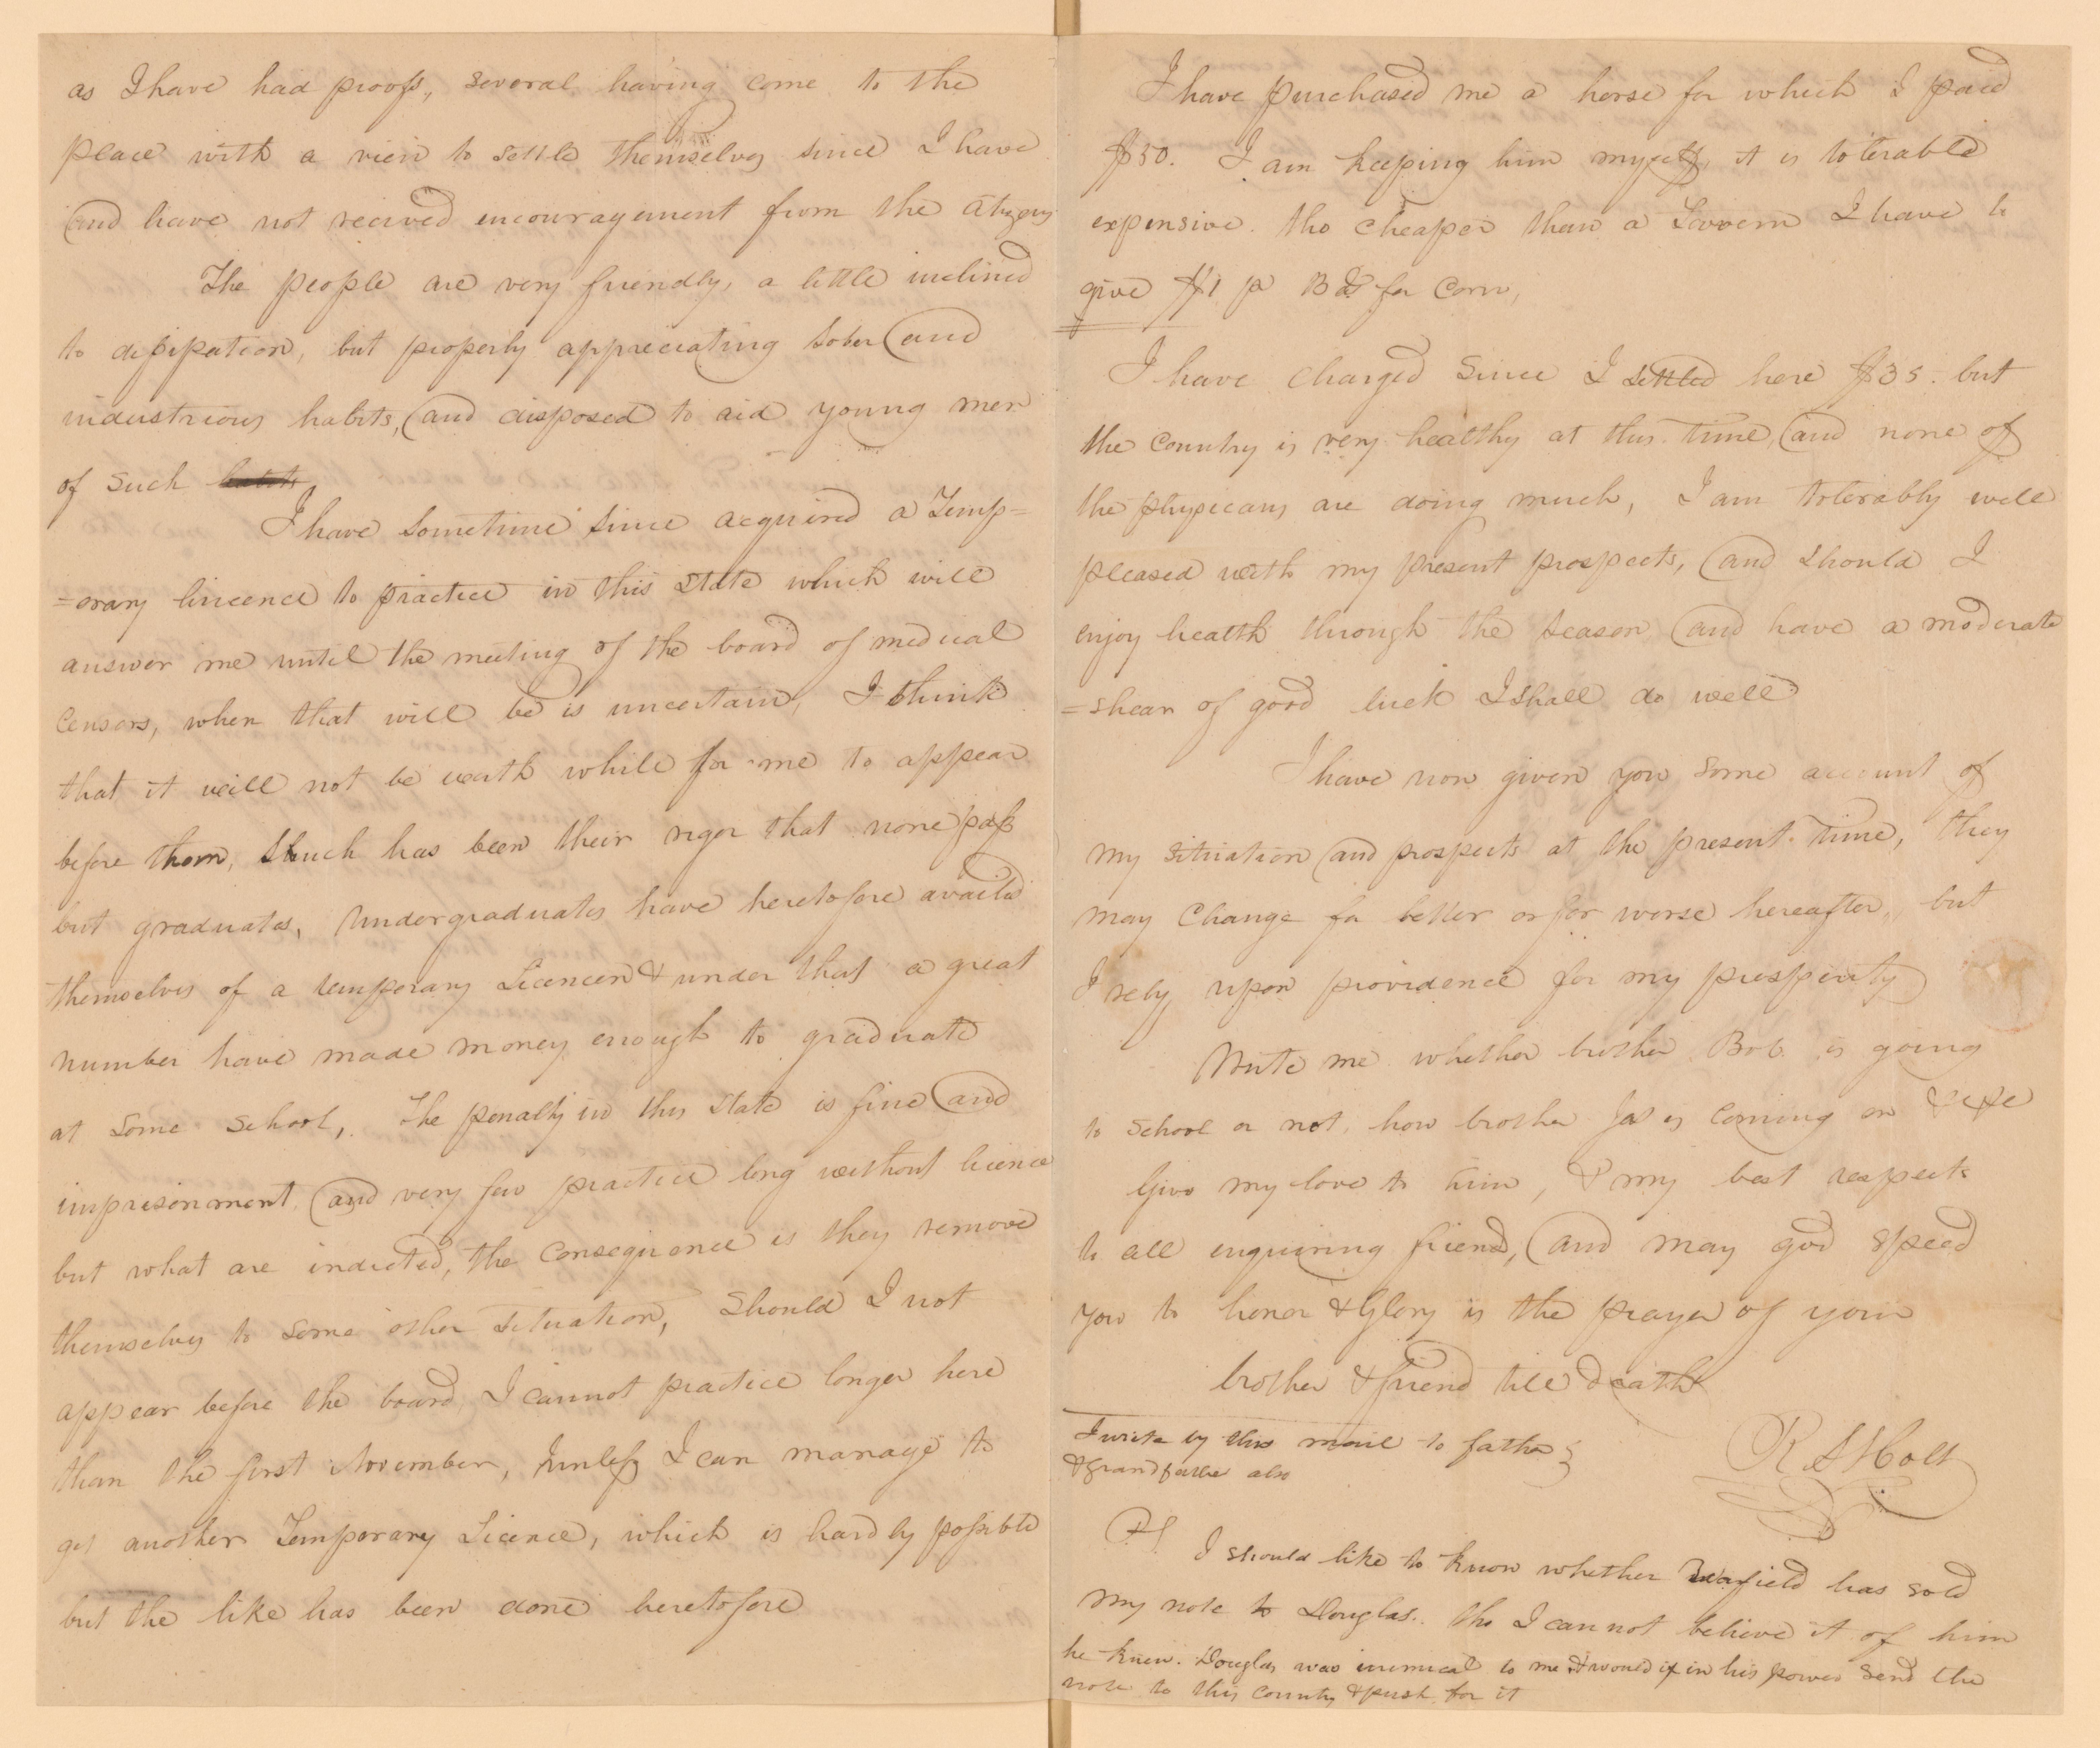 as I have had proofs, several having come to the
place with a view to settle themselves since I have
and have not recived encouragement from the
The people are very friendly, a little inclined
to dissipation, but properly appreciating sober and
industrious habits, and disposed to aid young men
of such habits
I have sometime since acquired a Temp=
=orary lincence to practice in this state which will
answer me until the meeting of the board of medical
Censors, when that will be is uncertain, I think
that it will not be worth while for me to appear
before them, such has been their rigor that none pass
but graduates, undergraduates have heretofore availd
themselves of a temporary Licence & under that a great
number have made money enough to graduate
at some school, The penalty in this state is fine and
imprisonment and very few practice long without licence
but what are indicted, the consequence is they remove
themselves to some other situation, Should I not
appear before the board I cannot practice longer here
than the first November, unless I can manage to
get another Temporary Licence, which is hardly possible
but the like has been done heretofore
I have purchased me a horse for which I paid
$50. I am keeping him myself, it is tolerable
expensive. tho cheaper than a Tavern I have to
give $1 p Bl for Corn,
I have charged since I settled here $35. but
the country is very healthy at this time, and none of
the physicans are doing much, I am tolerably well
pleased with my present prospects, and should I
enjoy health through the season and have a moderate
=shear of good luck I shall do well
I have now given you some account of
my situation and prospects at the present time, they
may change for better or for worse hereafter, but
I rely upon providence for my prosperity
Write me whether brother Bob. is going
to school or not, how brother Jas is coming on &c &c
Give my love to him, & my best respects
to all enquiring friends, and may god speed
you to honor & Glory is the prayer of your
brother & friend till death
R S Holt
I write by this mail to father
& grandfather also
PS I should like to know whether has sold
my note to Douglas. tho I can not believe it of him
he knew. Douglas was inimical to me & would if in his power send the
note to this country & push for it